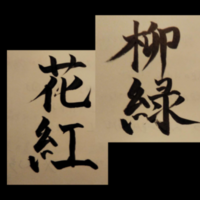 柳緑
花紅